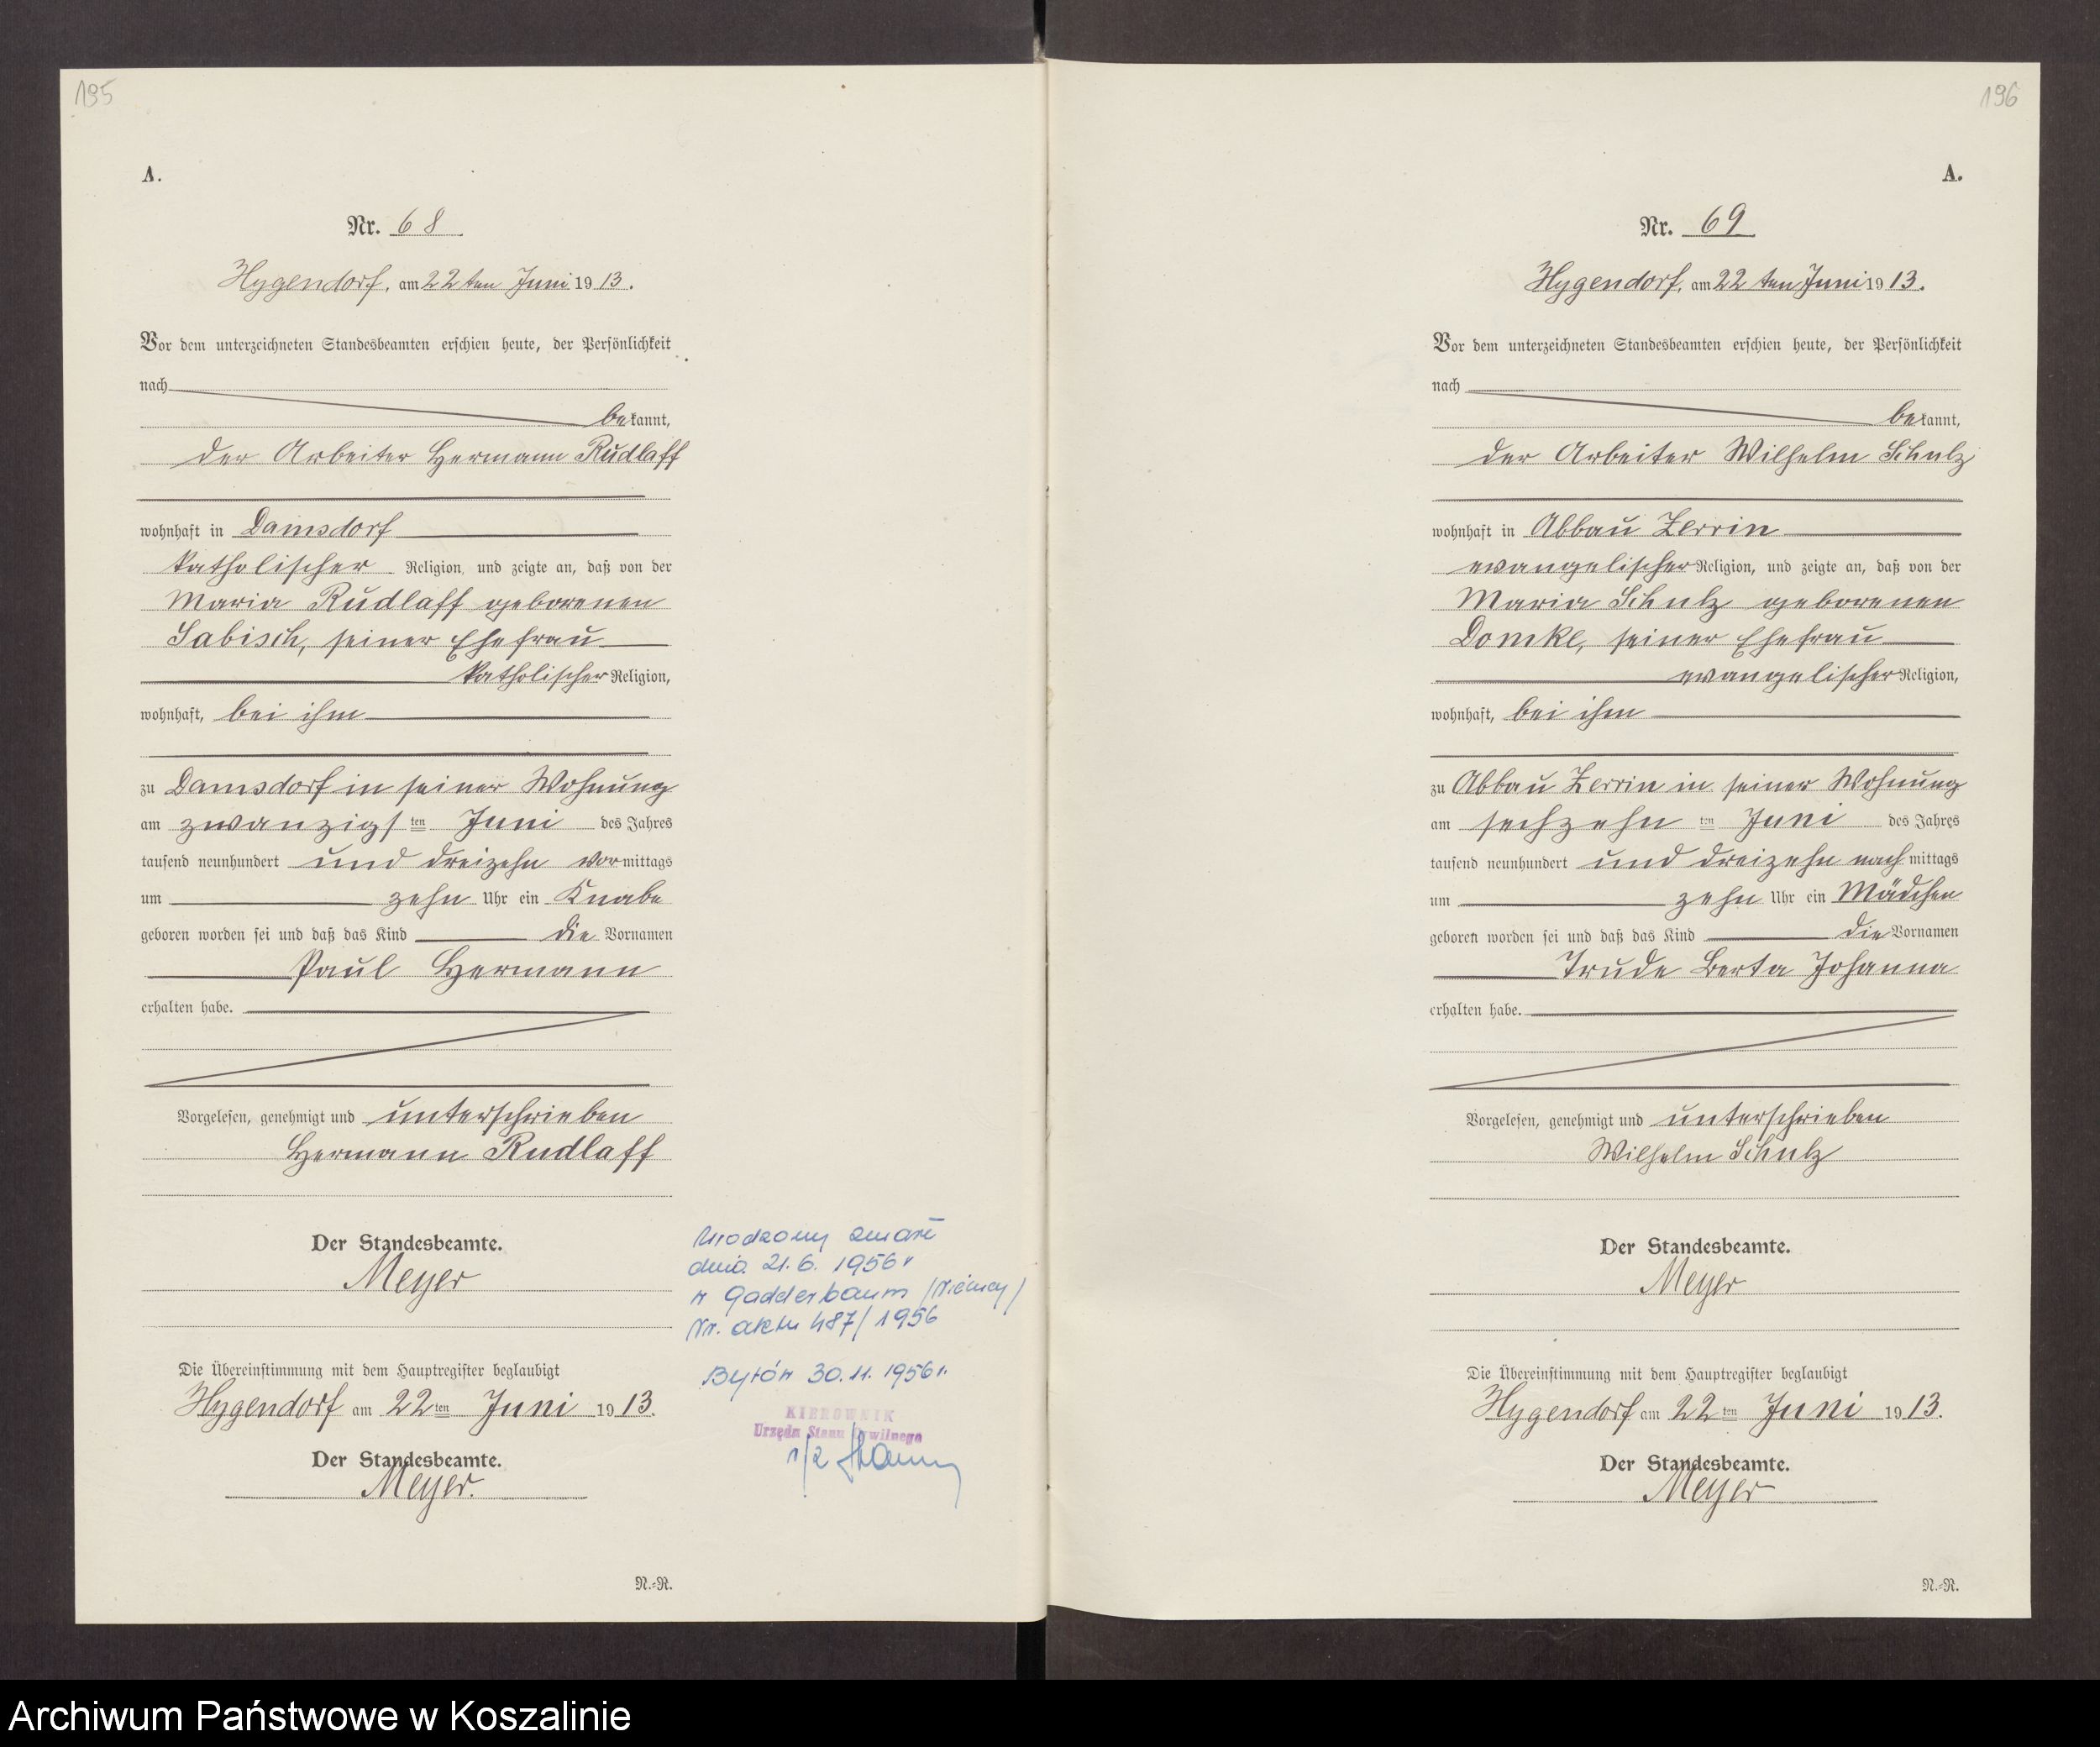 195
A.
Nr. 68
Hygendorf, am 22ten Juni 1913.
Vor dem unterzeichneten Standesbeamten erschien heute, der Persönlichkeit
nach
bekannt,
der Arbeiter Hermann Rudlaff
wohnhaft in Damsdorf
katholischer Religion, und zeigte an, daß von der
Maria Rudlaff geborenen
Sabisch, seiner Ehefrau
katholischer Religion,
wohnhaft, bei ihm
zu Damsdorf in seiner Wohnung
am zwanzigsten Juni des Jahres
tausend neunhundert und dreizehn vormittags
um zehn Uhr ein Knabe
geboren worden sei und daß das Kind die Vornamen
Paul Hermann
erhalten habe.
Vorgelesen, genehmigt und unterschrieben
Hermann Rudlaff
Der Standesbeamte.
Meyer
Die Übereinstimmung mit dem Hauptregister beglaubigt
Hygendorf am 22ten Juni 1913.
Der Standesbeamte.
Meyer.
N.=R.
Urodzony zmarł
dnia 21.6.1956 r
w Gadderbaum /Niemcy/
Nr. aktu 487/1956
Bytów 30.11.1956 r.
KIEROWNIK
Urzędu Stanu Cywilnego
196
A.
Nr. 69
Hygendorf, am 22ten Juni 1913.
Vor dem unterzeichneten Standesbeamten erschien heute, der Persönlichkeit
nach
bekannt,
der Arbeiter Wilhelm Schulz
wohnhaft in Abbau Zerrin
evangelischer Religion, und zeigte an, daß von der
Maria Schulz geborenen
Domke, seiner Ehefrau
evangelischer Religion,
wohnhaft, bei ihm
zu Abbau Zerrin in seiner Wohnung
am sechzehnten Juni des Jahres
tausend neunhundert und dreizehn nachmittags
um zehn Uhr ein Mädchen
geboren worden sei und daß das Kind die Vornamen
Trude Berta Johanna
erhalten habe.
Vorgelesen, genehmigt und unterschrieben
Wilhelm Schulz
Der Standesbeamte.
Meyer
Die Übereinstimmung mit dem Hauptregister beglaubigt
Hygendorf am 22ten Juni 1913.
Der Standesbeamte.
Meyer
N.=R.
Archiwum Państwowe w Koszalinie